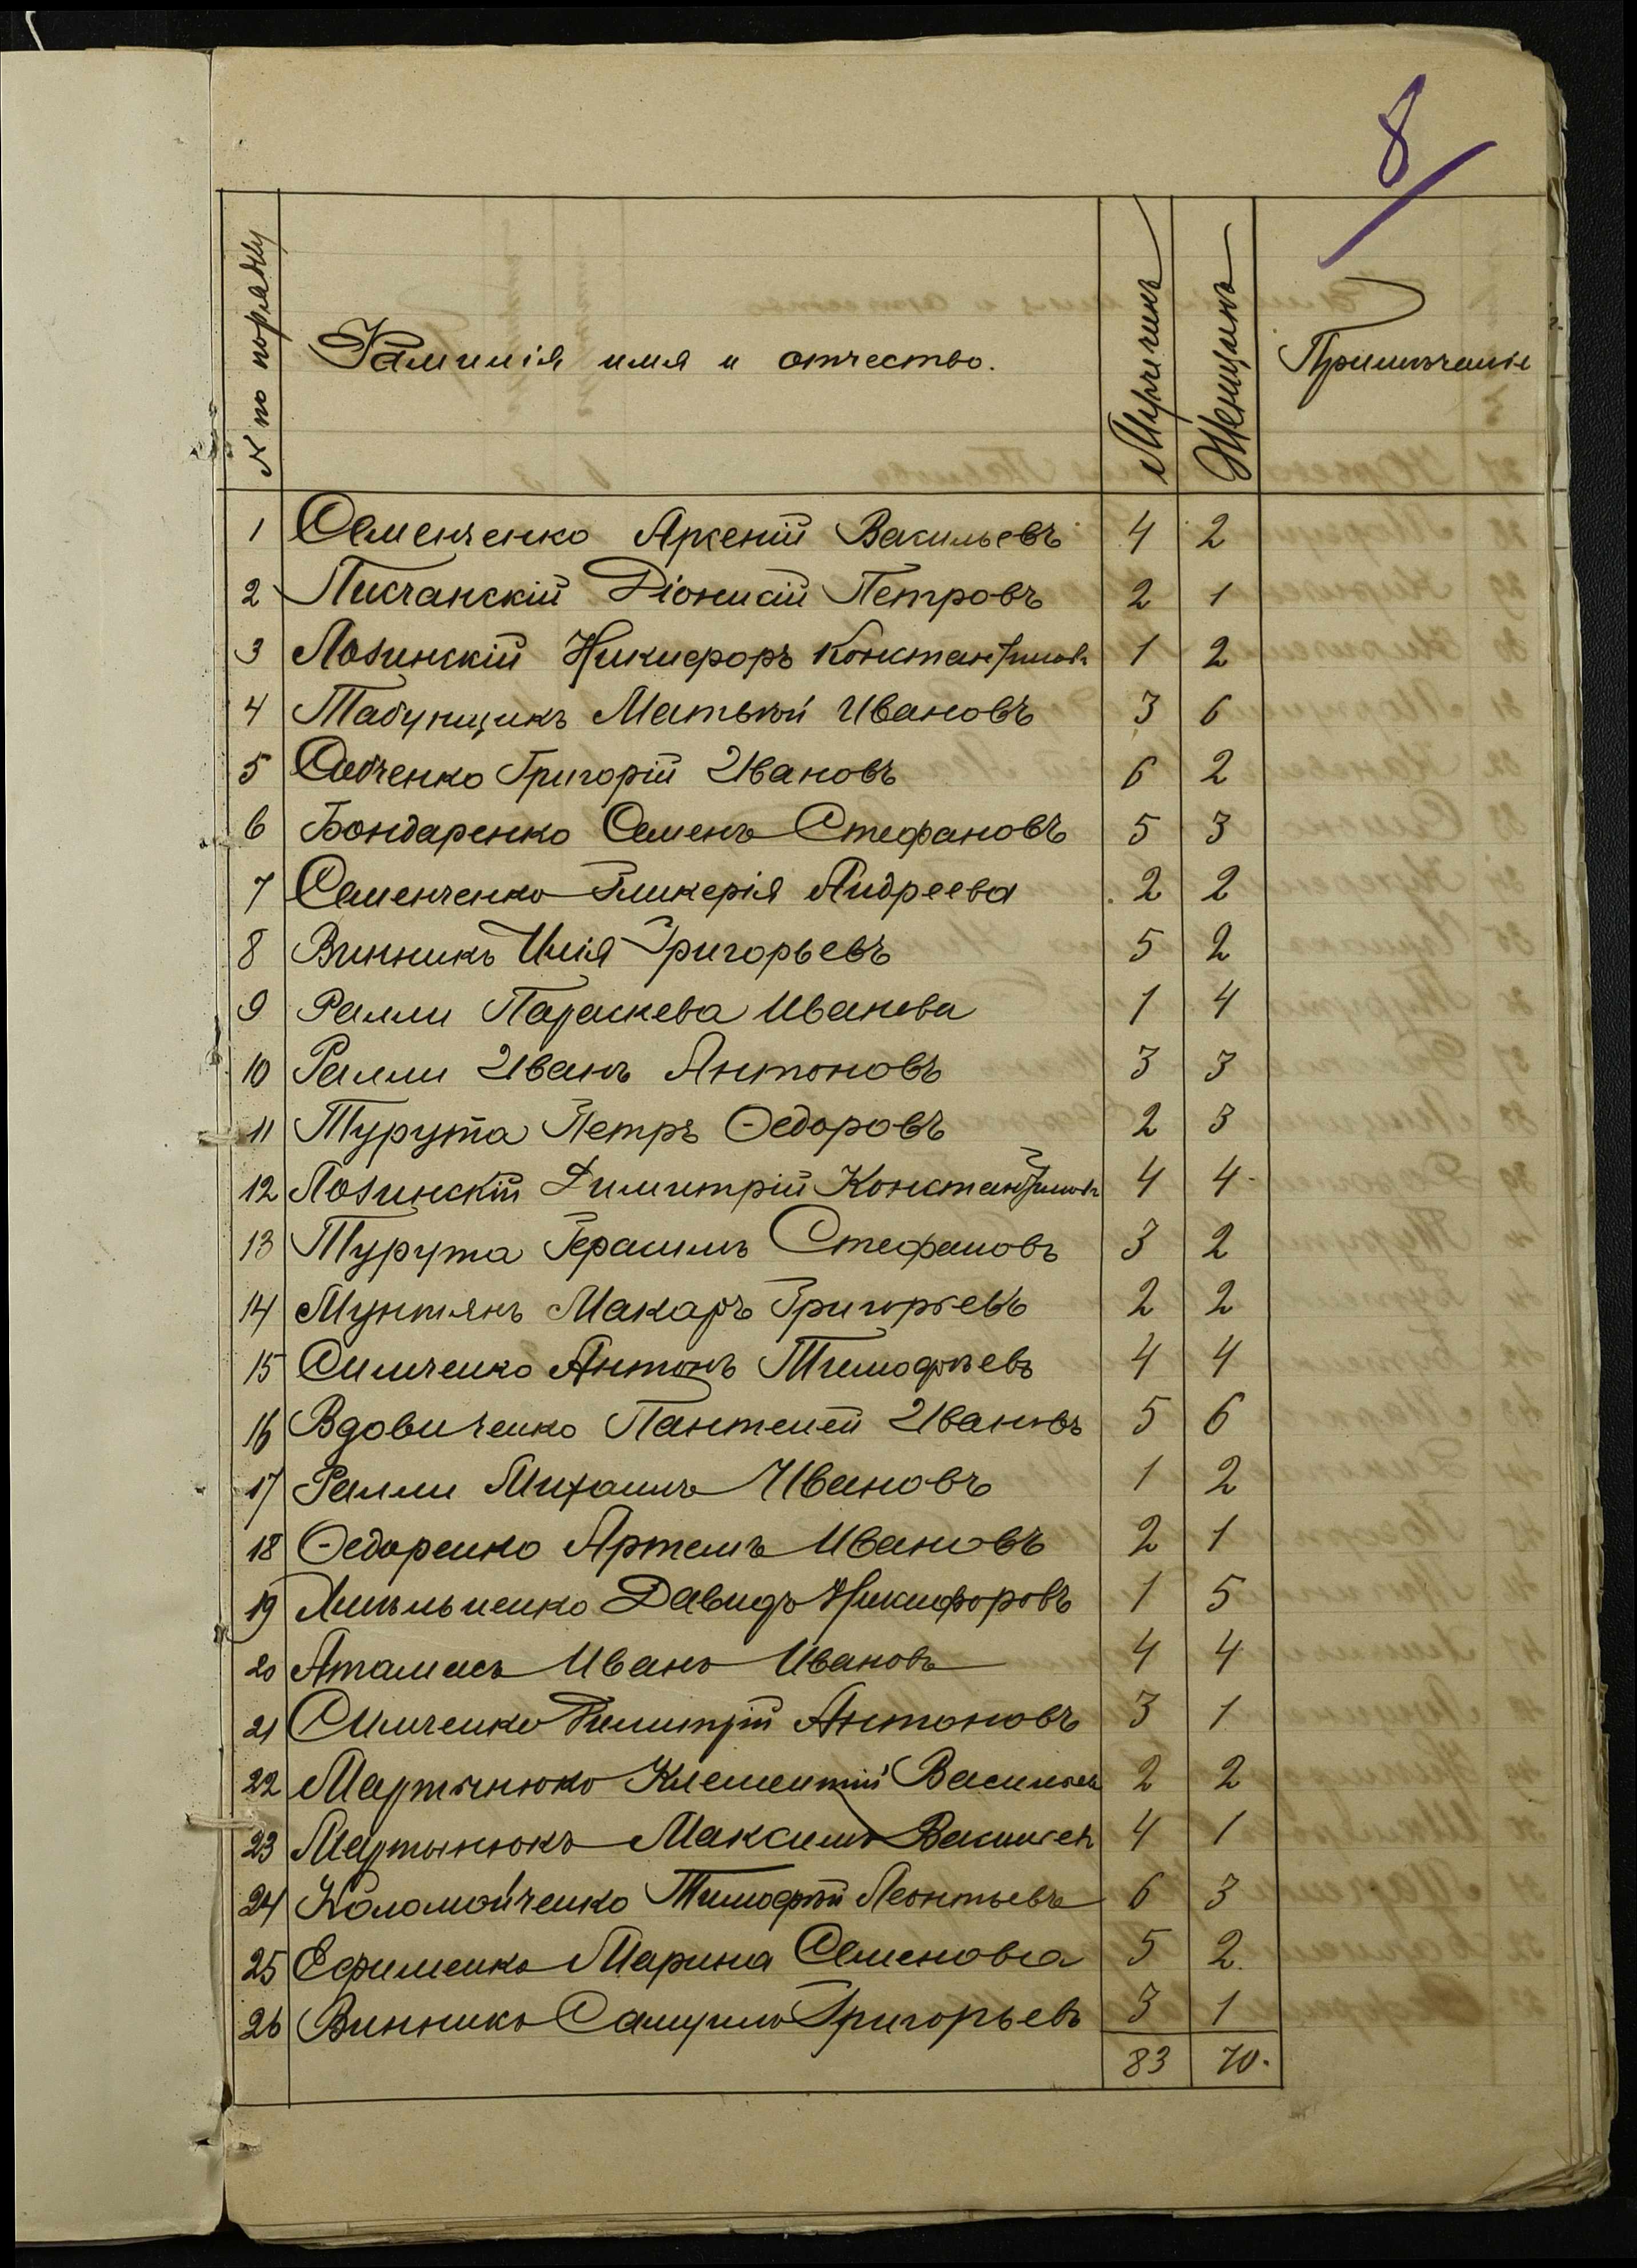 8
№ по порядку Фамилія имя и отчество. Мужчинъ Женщинъ Примѣчаніе
1 Семенченко Арсеній Васильевъ 4 2
2 Писчанскій Діонисій Петровъ 2 1
3 Лозинскій Никифоръ Константиновъ 1 2
4 Табунщикъ Матвѣй Ивановъ 3 6
5 Савченко Григорій Ивановъ 6 2
6 Бондаренко Семенъ Стефановъ 5 3
7 Семенченко Гликерія Андреева 2 2
8 Винникъ Илія Григорьевъ 5 2
9 Ралли Параскева Иванова 1 4
10 Ралли Иванъ Антоновъ 3 3
11 Турута Петръ Ѳедоровъ 2 3
12 Лозинскій Димитрій Константиновъ 4 4
13 Турута Герасимъ Стефановъ 3 2
14 Мунтянъ Макаръ Григорьевъ 2 2
15 Симченко Антонъ Тимофѣевъ 4 4
16 Вдовиченко Пантелей Ивановъ 5 6
17 Ралли Михаилъ Ивановъ 1 2
18 Ѳедоренко Артемъ Ивановъ 2 1
19 Давидъ Никифоровъ 1 5
20 Атамасъ Иванъ Ивановъ 4 4
21 Симченко Димитрій Антоновъ 3 1
22 Мартынюкъ Клементій Васильевъ 2 2
23 Мартынюкъ Максимъ Васильев 4 1
24 Коломойченко Тимофѣй Леонтьевъ 6 3
25 Ефименко Марина Семеновна 5 2
26 Винникъ Самуилъ Григорьевъ 3 1
83 70.